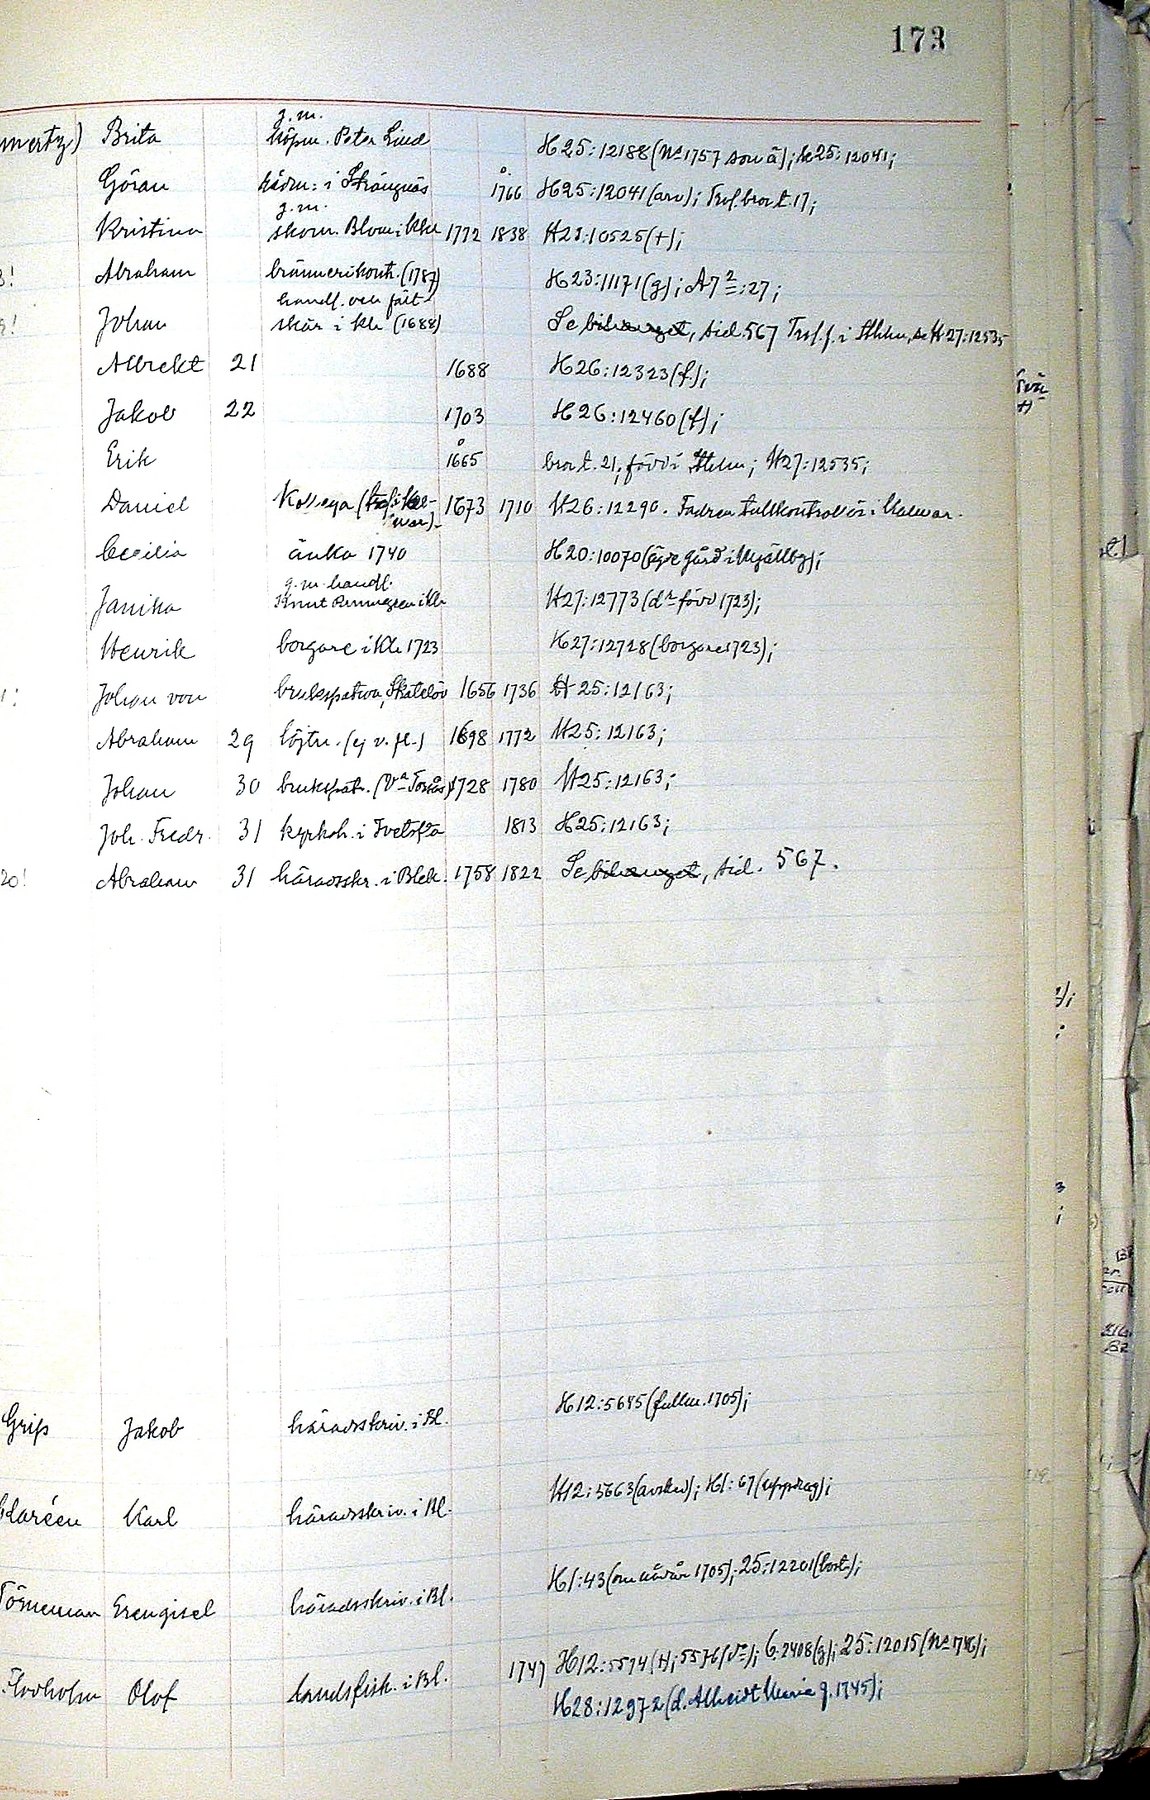 173
g.m.
mertz) Brita köpm. Peter Lind H25:12188 (Nº1757 som ä); k25:12041;
Göran rådm: i Strängnäs å 1766 H25:12041 (arv); Trol. bror t. 17;
g.m.
Kristina skom. Blom i Kha 1772 1838 H23:10525 (+);
Abraham brännerikontr. (1787) H23:11171 (g); A7²:27;
handl. och fält-
Johan skär i Kha (1688) Se bihanget, sid. 567 Trol. f. i Sthlm, se H27:12535
Albrekt 21 1688 H26:12323 (f.);
Jakob 22 1703 H26:12460 (f);
Erik å 1665 bror t. 21, född i Sthlm; H27:12535;
Daniel 1673 1710 H26:12290. Fadren tullkontrollör i Kalmar.
Cecilia änka 1740 H20:10070 (ägde gård i Mjällby);
g.m. handl.
Janika Knut i Kha H27:12773 (dr född 1723);
Henrik borgare i Kha 1723 H27:12728 (borgare 1723);
Johan von brukspatron, Skatelöv 1656 1736 H25:12163;
Abraham 29 löjtn. (ej v. fl.) 1698 1772 H25:12163;
Johan 30 brukspatr. (Va Torsås) 1728 1780 H25:12163;
Joh. Fredr. 31 kyrkoh. i Ivetofta 1813 H25:12163;
20! Abraham 31 häradsskr. i Blek. 1758 1822 Se bihanget, sid. 567.
Grip Jakob häradsskriv. i Bl. H12:5645 (fullm. 1705);
Klaréen Karl häradsskriv. i Bl. H12:5663 (avsked); H1:67 (uppdrag);
Törneman Erengisel häradsskriv. i Bl. H1:43 (om nådår 1705); 25:12201 (bost.);
Flodholm Olof landsfisk. i Bl. 1747 H12:5574 (t); 5576 (Va); 6:2408 (g); 25:12015 (Nº 1746);
H28:12972 (d. Alheidt Maria g. 1745);